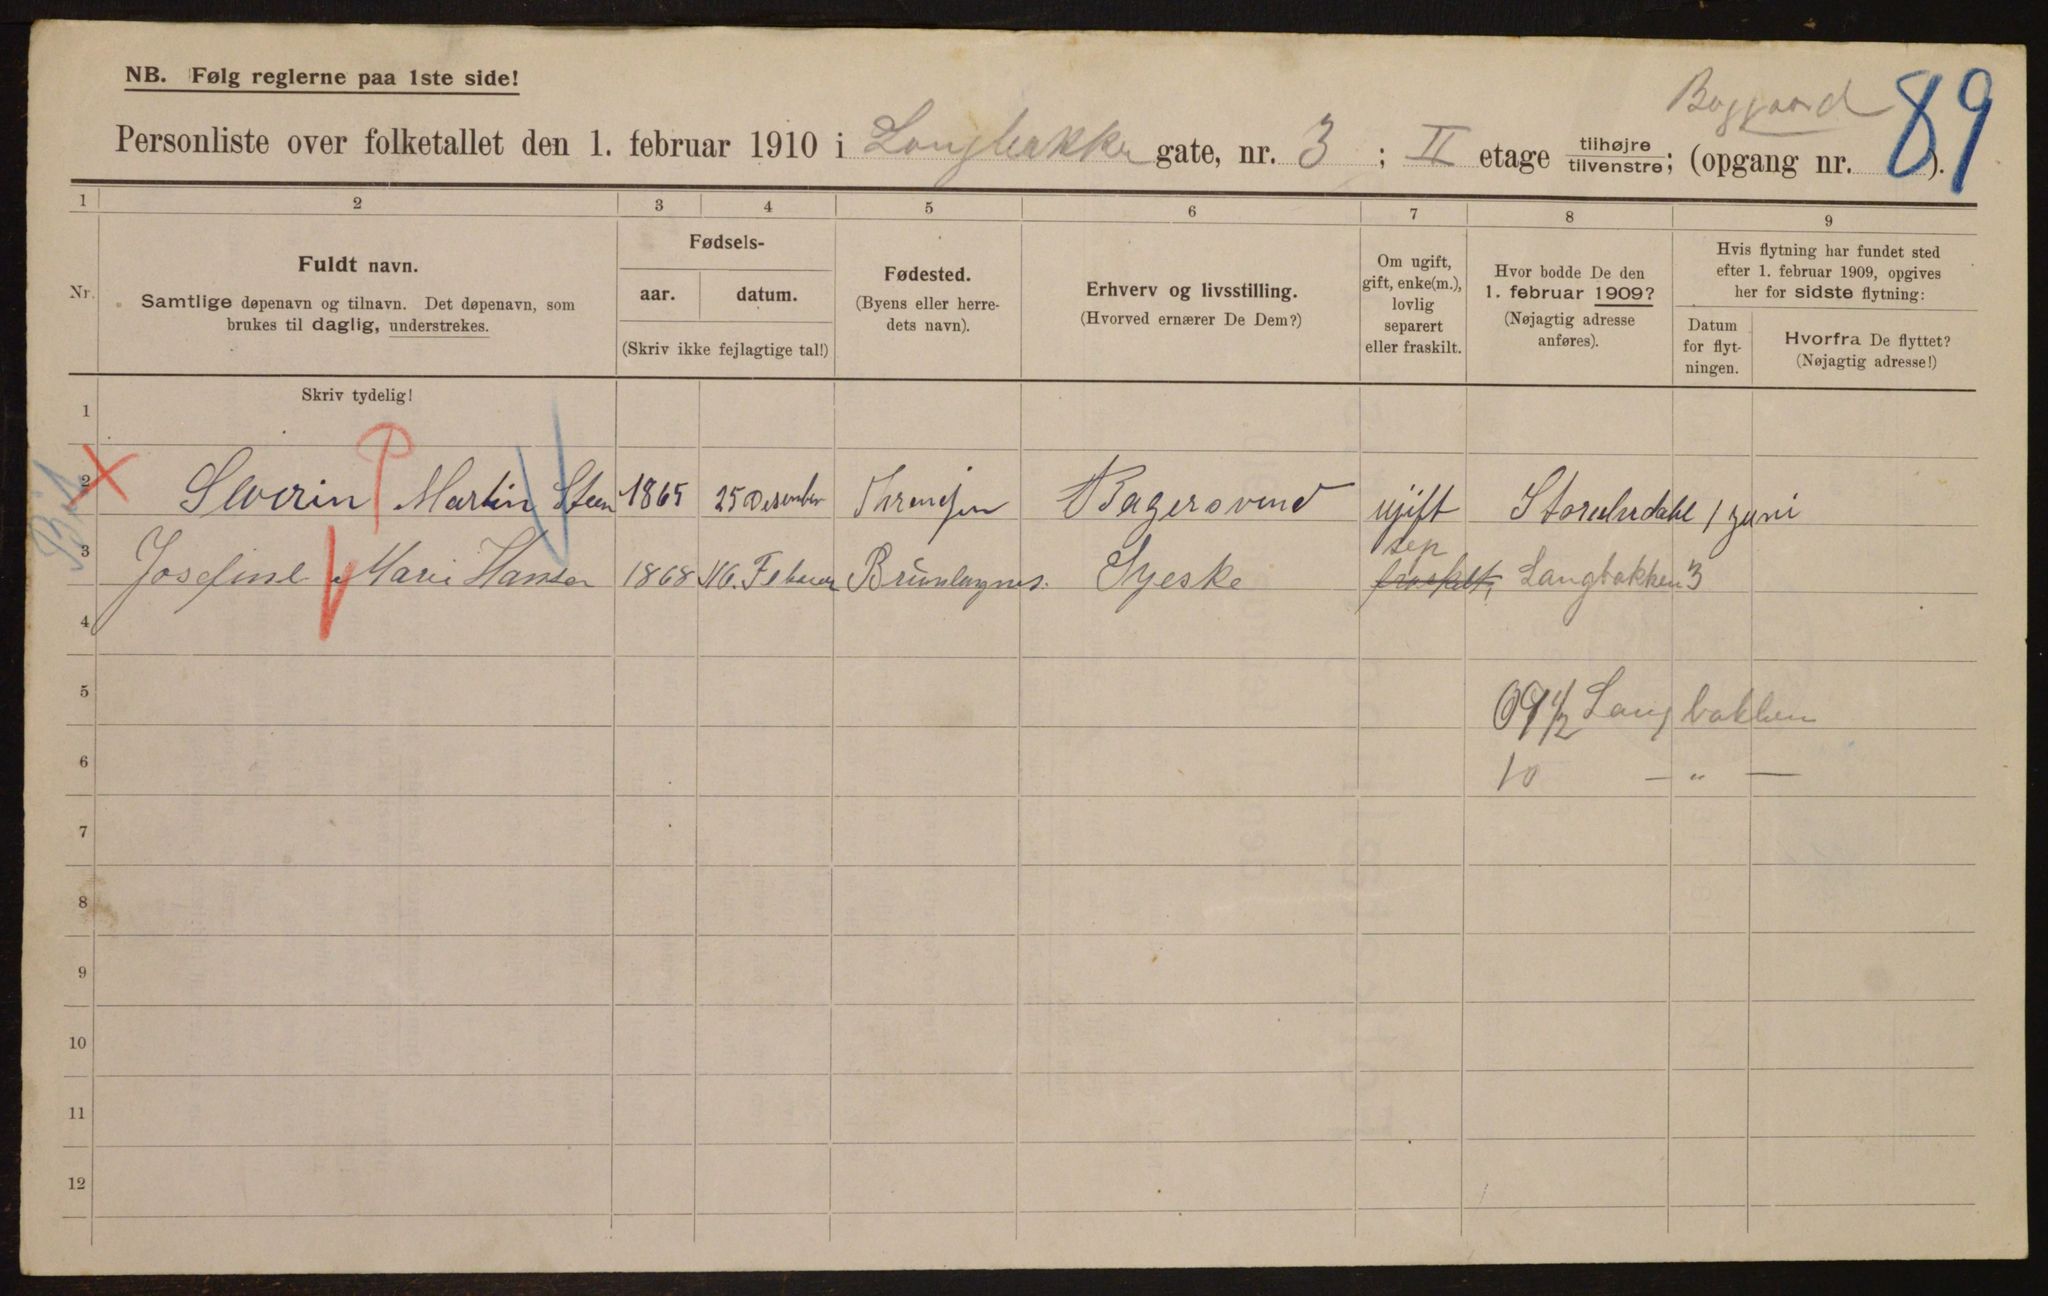 NB. Følg reglerne paa 1ste side!
Baggaard
89
Personliste over folketallet den 1. februar 1910 i Langbakke gate, nr. 3 ; II etage tilhøjre tilvenstre; (opgang nr. ).
1 2 3 4 5 6 7 8 9
Nr.
Fuldt navn.
Samtlige døpenavn og tilnavn. Det døpenavn, som
brukes til daglig, understrekes.
Fødsels-
aar. datum.
(Skriv ikke fejlagtige tal!)
Fødested.
(Byens eller herre-
dets navn).
Erhverv og livsstilling.
(Hvorved ernærer De Dem?)
Om ugift,
gift, enke(m.),
lovlig
separert
eller fraskilt.
Hvor bodde De den
1. februar 1909?
(Nøjagtig adresse
anføres).
Hvis flytning har fundet sted
efter 1. februar 1909, opgives
her for sidste flytning:
Datum
for flyt-
ningen.
Hvorfra De flyttet?
(Nøjagtig adresse!)
Skriv tydelig!
1
2 Severin Martin Steen 1865 25 Desember Bagersvend ugift 1 juni
3 Josefine Marie Hansen 1868 16. Februar Brunlagnes. Syeske sep fraskilt, Langbakken 3
4
5 09 1/2 Langbakken
6 10 — „ —
7
8
9
10
11
12